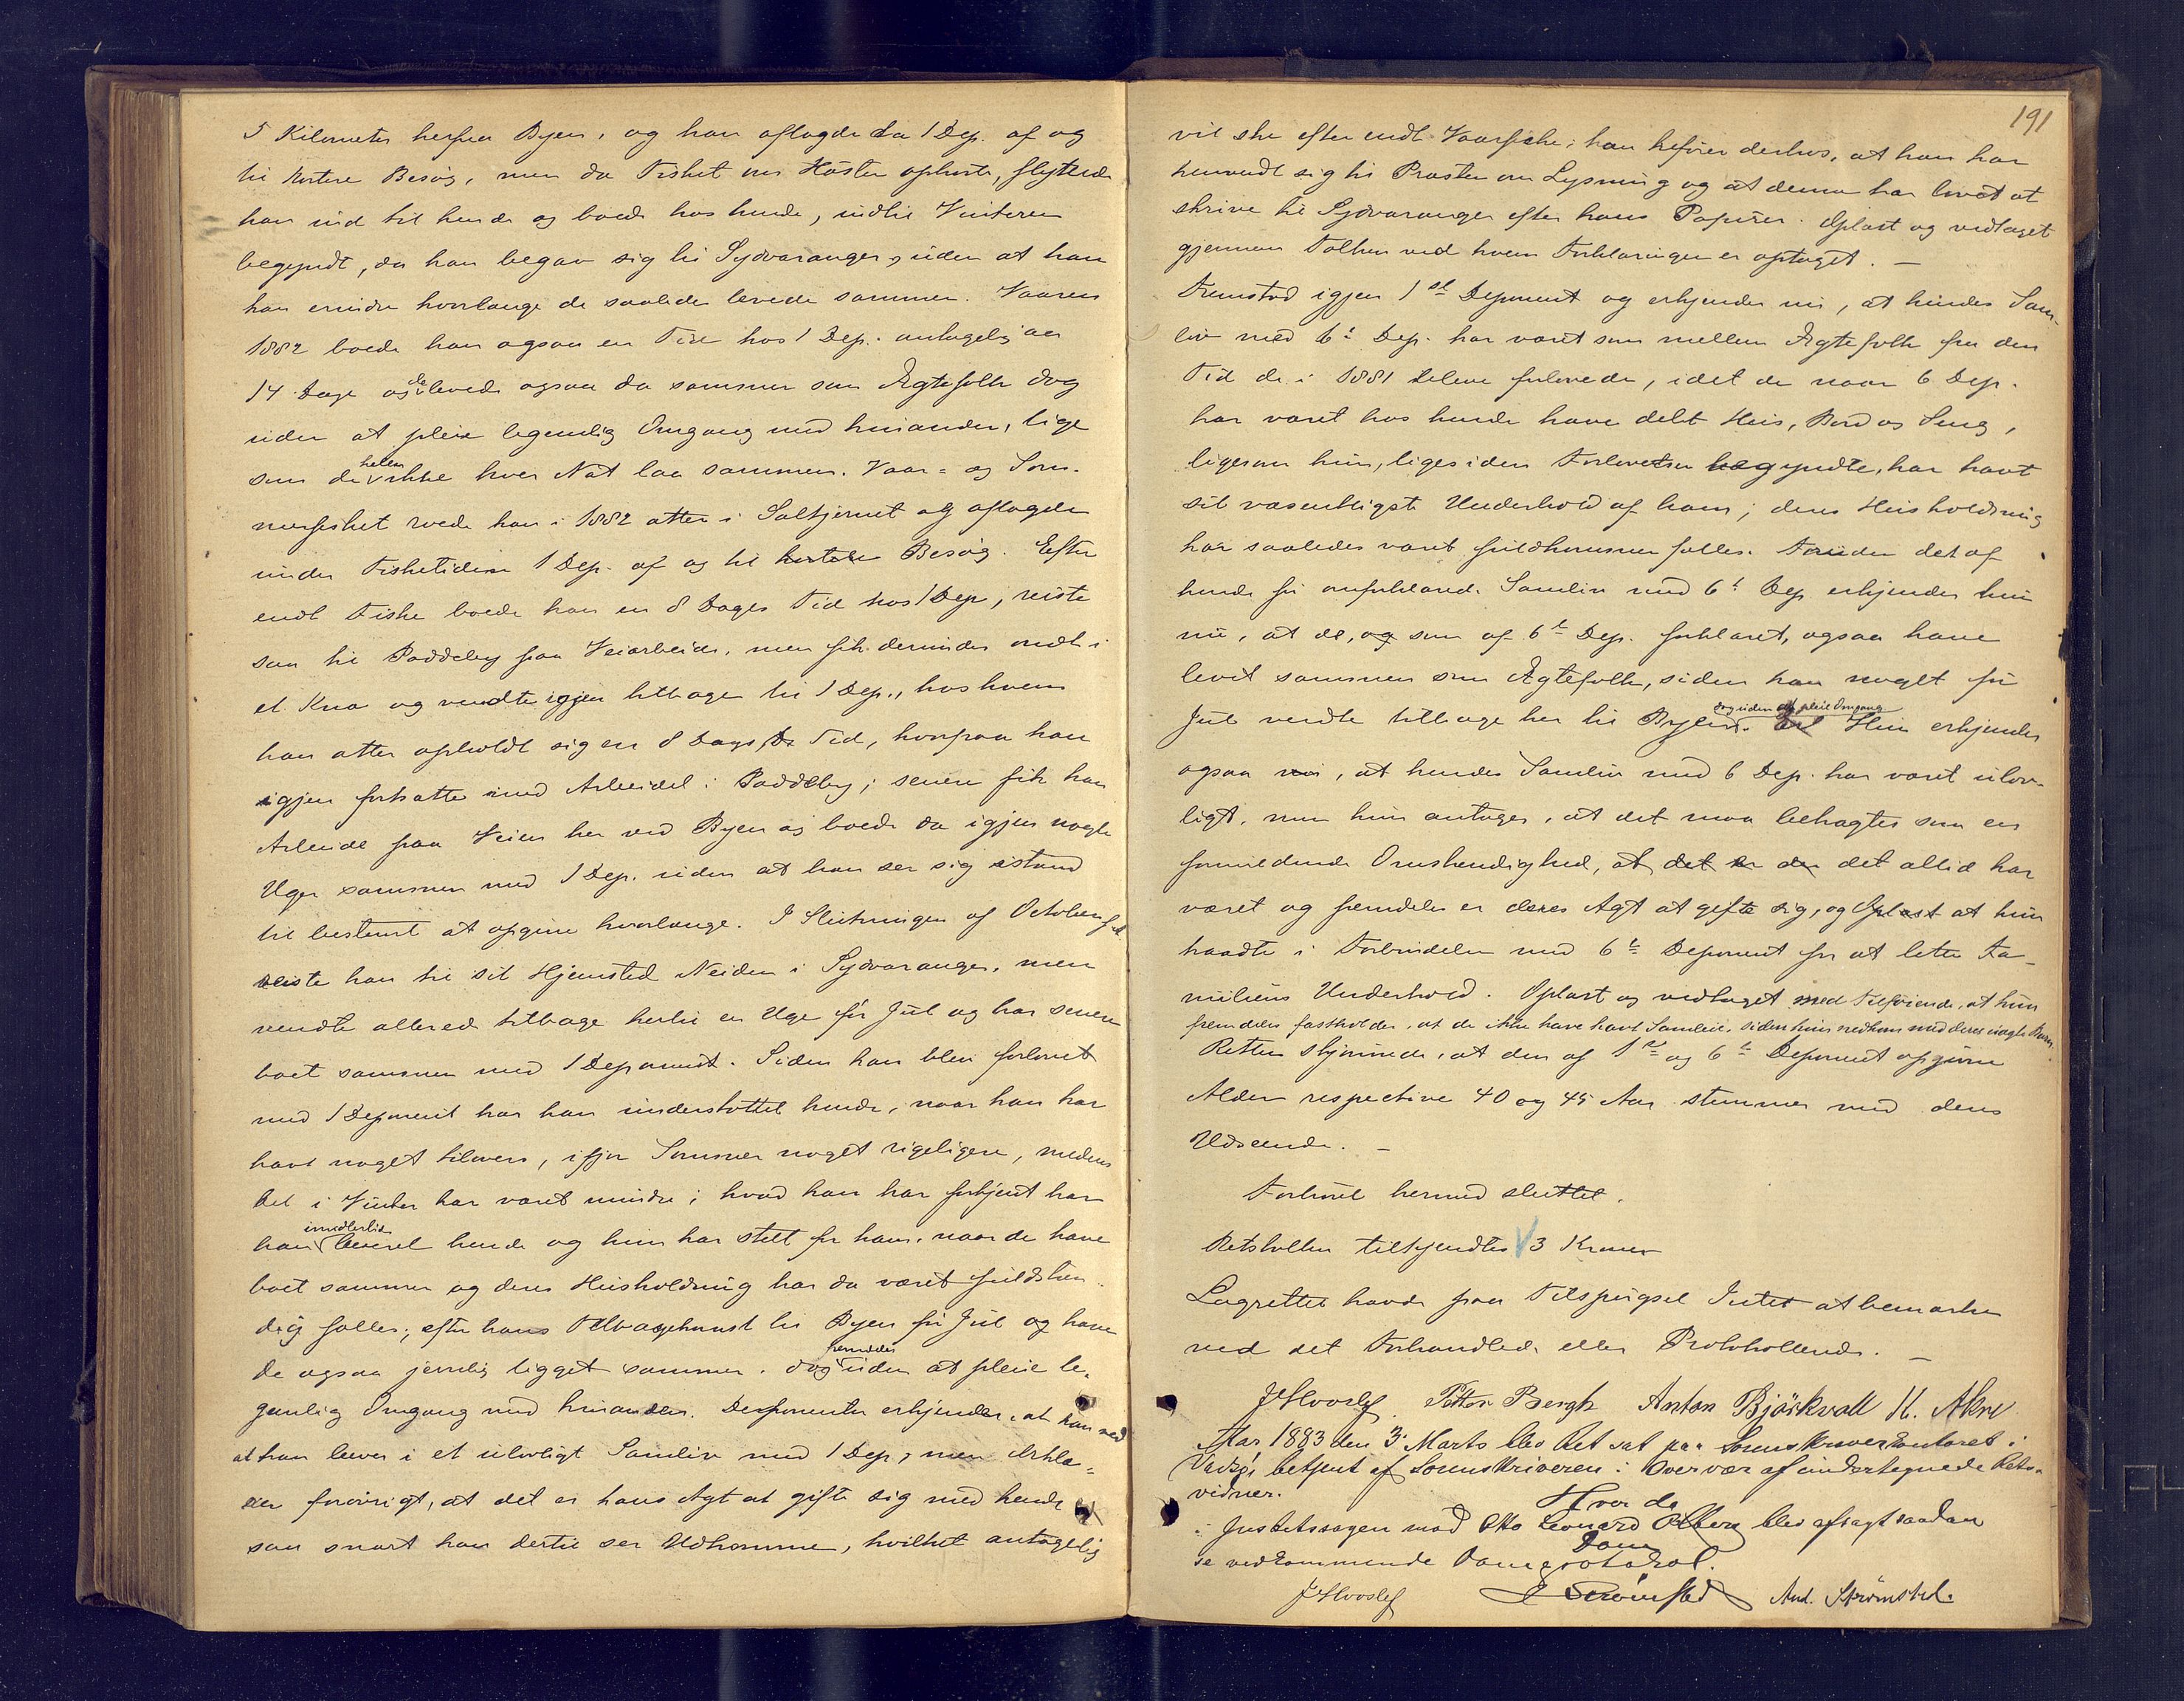 5 Kilometer herfra Byen, og han aflagde da 1 Dep. af og
til kortere Besøg, men da Fisket om Høsten ophørte, flyttede
han ind til hende og boede hos hende, indtil Vinteren
begyndt, da han begav sig til Sydvaranger, uden at han
kan erindre hvorlænge de saaledes levede sammen. Vaaren
1882 boede han ogsaa en Tid hos 1 Dep. antagelig en
14 Dage og de levede ogsaa da sammen som Ægtefolk dog
uden at pleie legemlig Omgang med hinanden, lige
som de heller ikke hver Nat laa sammen. Vaar- og Som-
merfisket roede han i 1882 atter i Saltjernet og aflagde
under Fisketiden 1 Dep. af og til kortere Besøg. Efter
endt Fiske boede han en 8 Dages Tid hos 1 Dep, reiste
saa til Paddeby paa Veiarbeide, men fik derinde ondt i
et Knæ og vendte igjen tilbage til 1 Dep., hos hvem
han atter opholdt sig en 8 Dags Tid, hvorpaa han
igjen fortsatte med Arbeidet i Paddeby; senere fik han
Arbeide paa Veien her ved Byen og boede da igjen nogle
Uger sammen med 1 Dep. uden at han ser sig istand
til bestemt at opgive hvorlænge. I Slutningen af October
reiste han til sit Hjemsted Neiden i Sydvaranger, men
vendte allerede tilbage hertil en Uge før Jul og har senere
boet sammen med 1 Deponent. Siden han blev forlovet
med 1 Deponent har han understøttet hende, naar han har
havt noget tilovers, ifjor Sommer noget rigeligere, medens
det i Vinter har været mindre; hvad han har fortjent har
han imidlertid leveret hende og hun har stelt for ham, naar de have
boet sammen og deres Husholdning har da været fuldstæn-
dig fælles; efter hans Tilbagekomst til Byen før Jul og have
de ogsaa jevnlig ligget sammen, dog fremdeles uden at pleie le-
gemlig Omgang med hinanden. Deponenten erkjender, at han ved
at han lever i et ulovligt Samliv med 1 Dep, men erklæ-
rer forøvrigt, at det er hans Agt at gifte sig med hende
saa snart han dertil ser Udkomme, hvilket antagelig
191
vil ske efter endt Vaarfiske; han anfører derhos, at han har
henvendt sig til Præsten om Lysning og at denne har lovet at
skrive til Sydvaranger efter hans Papirer. Oplæst og vedtaget
gjennem Tolken ved hvem Forklaringen er optaget. —
Fremstod igjen 1ste Deponent og erkjender nu, at hendes Sam-
liv med 6te Dep. har været som mellem Ægtefolk fra den
Tid de i 1881 bleve forlovede, idet de naar 6 Dep.
har været hos hende have delt Hus, Bord og Seng,
ligesom hun, lige siden Forlovelsen begyndte, har havt
sit væsentligste Underhold af ham; deres Husholdning
har saaledes været fuldkommen fælles. Foruden det af
hende før omforklarede Samliv med 6te Dep erkjender hun
nu, at de, og som af 6te Dep. forklaret, ogsaa have
levet sammen som Ægtefolk, siden han noget før
Jul vendte tilbage her til Byen dog uden at pleie Omgang. Hun erkjender
ogsaa nu, at hendes Samliv med 6 Dep. har været ulov-
ligt, men hun antager, at det maa betragtes som en
formildende Omstændighed, at det er der det altid har
været og fremdeles er deres Agt at gifte sig, og Oplæst at hun
traadte i Forbindelse med 6te Deponent for at lette Fa-
miliens Underhold. Oplæst og vedtaget med Tilføiende, at hun
fremdeles fastholder, at de ikke have havt Samleie, siden hun nedkom med deres uægte Barn.
Retten skjønnede, at den af 1ste og 6te Deponent opgivne
Alder respective 40 og 45 Aar stemmer med deres
Udseende. —
Forhøret hermed sluttet.
Retstolken tilkjendtes 3 Kroner
Lagrettet havde paa Tilspørgsel Intet at bemærke
ved det Forhandlede eller Protokollerede. —
J Hvoslef. Petter Bergh Anton Björkvall K. Akre
Aar 1883 den 3 Marts blev Ret sat paa Sorenskriverkontoret i
Vadsø betjent af Sorenskriveren i Overvær af undertegnede Rets-
vidner.
Hvor da
i Justitssagen mod Otto Leonard blev afsagt saadan
Dom
se vedkommende Domsprotokol.
J Hvoslef Strømsted And. Strømsted.